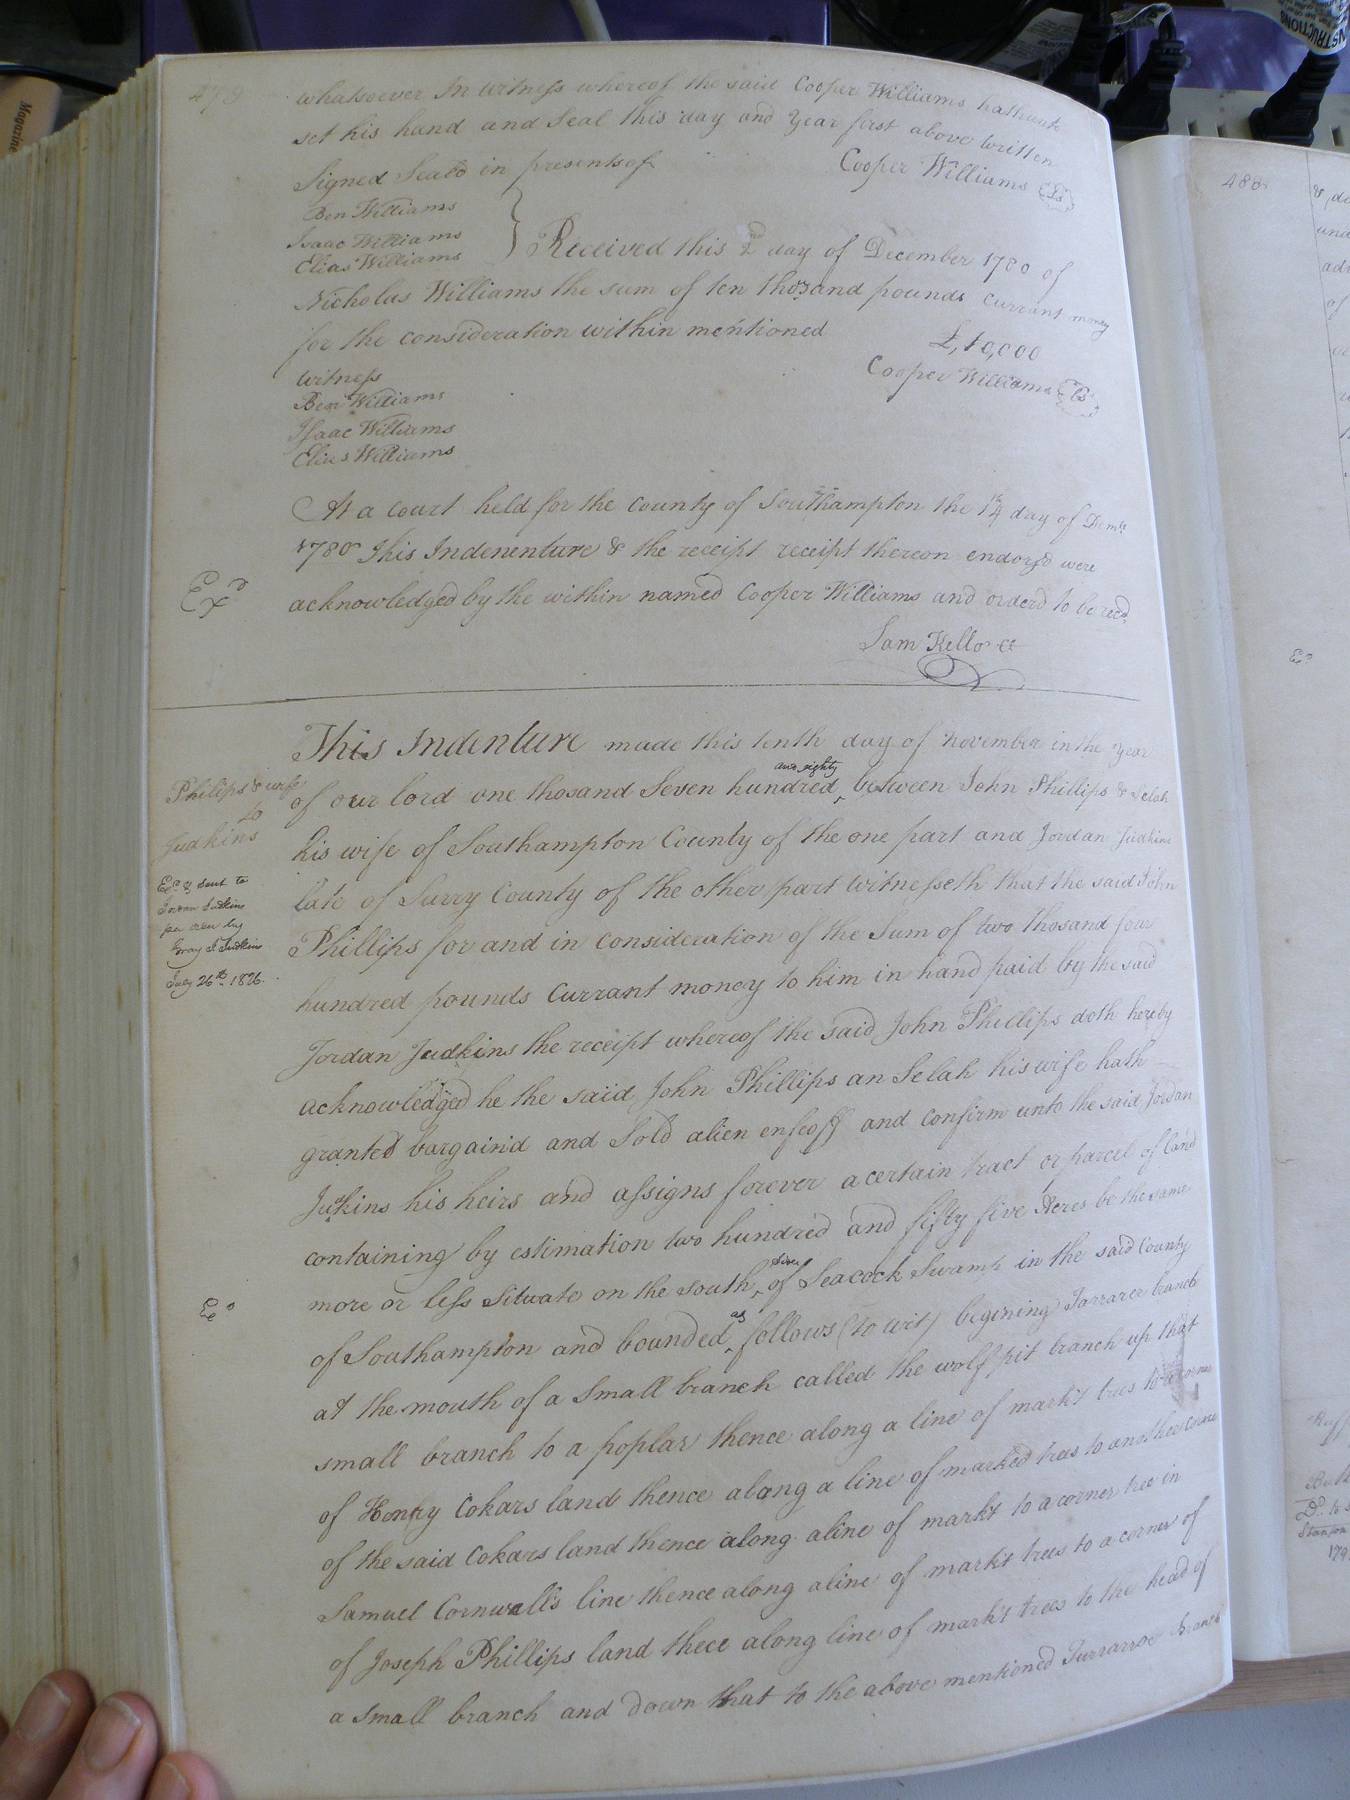 479
whatsoever In witness whereof the said Cooper Williams hathunto
set his hand and Seal this day and Year first above written
Signed Seald in presents of
Cooper Williams Ls
Ben Williams
Isaac Williams
Elias Williams
Received this 2nd day of December 1780 of
Nicholas Williams the sum of ten thosand pounds currant money
for the consideration within mentioned
£,10,000
Witness
Cooper Williams Ls
Ben Williams
Isaac Williams
Elias Williams
At a Court held for the County of Southampton the 14 day of Dcmbr
1780 This Indenenture & the receipt receipt thereon endorsd were
acknowledged by the within named Cooper Williams and orderd to be recd
Exd
Sam Kello Cl
This Indenture made this tenth day of November in the Year
of our lord one thosand Seven hundred and eighty between John Phillips & Selah
his wife of Southampton County of the one part and Jordan Judkins
late of Surry County of the other part witnesseth that the said John
Phillips for and in consideration of the Sum of two thosand four
hundred pounds Currant money to him in hand paid by the said
Jordan Judkins the receipt whereof the said John Phillips doth hereby
acknowledged he the said John Phillips an Selah his wife hath
granted bargaind and Sold alien enfeoff and confirm unto the said Jordan
Judkins his heirs and assigns forever a certain tract or parcel of land
containing by estimation two hundred and fifty five Acres be the same
more or less Situate on the south side of Seacock Swamp in the said County
of Southampton and bounded as follows (to wit) begining Tarrarer branch
at the mouth of a Small branch called the wolf pit branch up that
small branch to a poplar thence along a line of markt trees to a corner
of Henry Cokars land thence along a line of marked trees to another corner
of the said Cokars land thence along a line of markt to a corner tree in
Samuel Cornwell's line thence along a line of markt trees to a corner of
of Joseph Phillips land thece along line of markt trees to the head of
a Small branch and down that to the above mentioned Turrarroe Branch
Philips & wife
to
Judkins
Exd & Sent to
Jordan Judkins
per order by
Gray J. Judkins
July 26th 1826.
Exd
480
Exd
Magazine